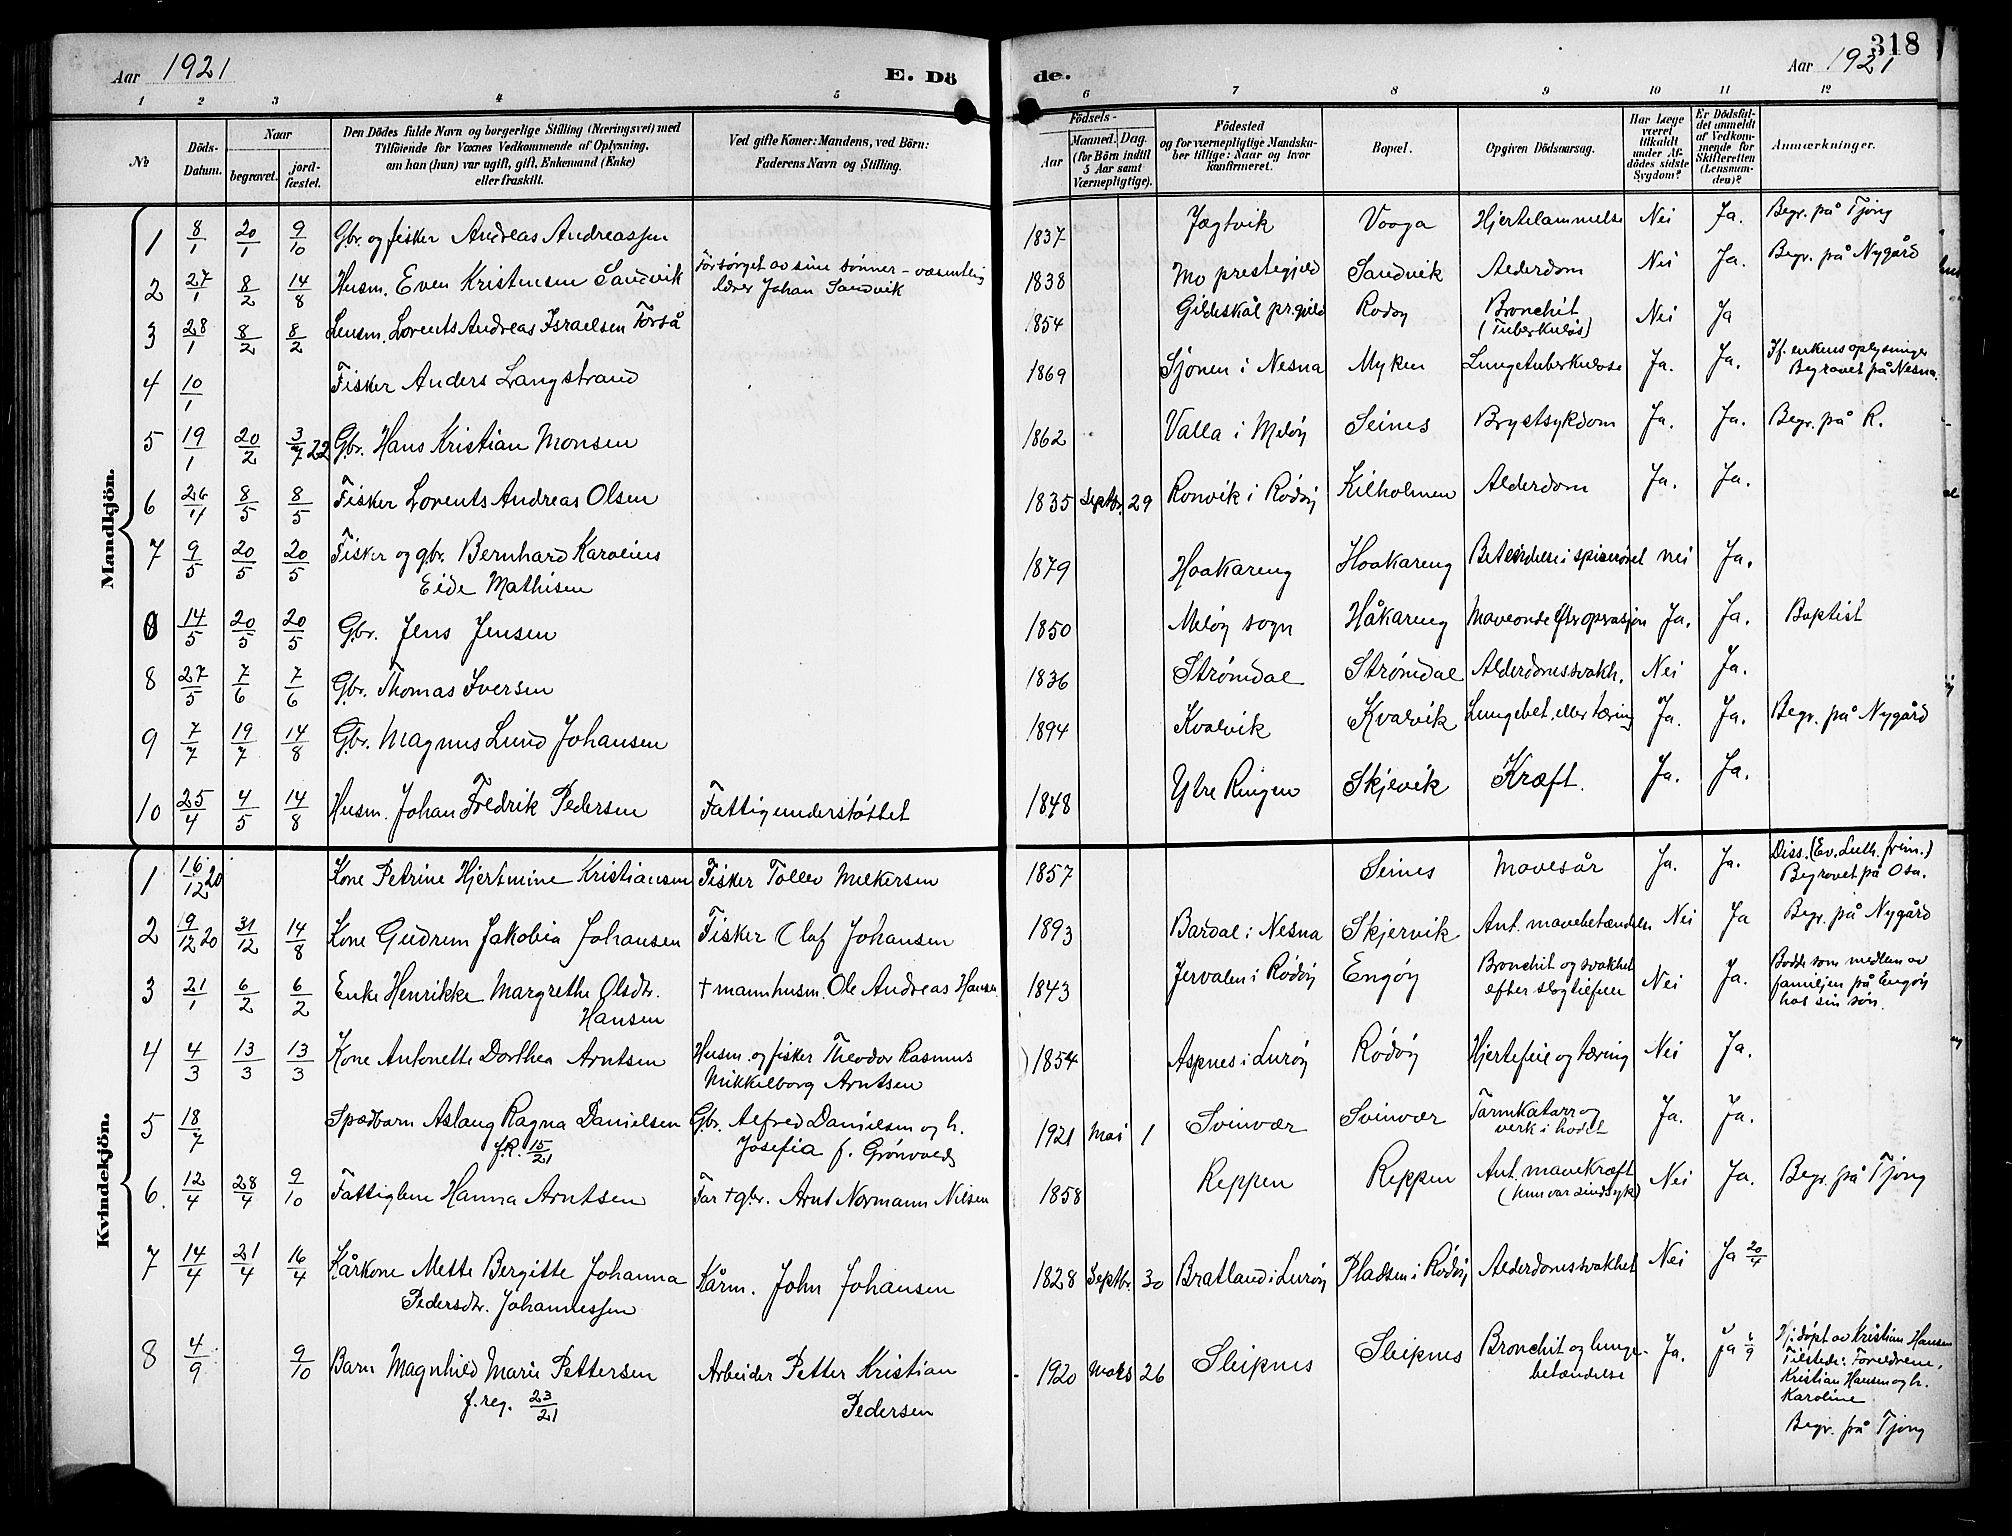 318
Aar 1921 E. Dö de. Aar 1921
1 2 3 4 5 6 7 8 9 10 11 12
No
Döds-Datum.
Naar
begravet.
jord-fæstet.
Den Dödes fulde Navn og borgerlige Stilling (Næringsvei) med
Tilföiende for Voxnes Vedkommende af Oplysning,
om han (hun) var ugift, gift, Enkemand (Enke)
eller fraskilt.
Ved gifte Koner: Mandens, ved Börn:
Faderens Navn og Stilling.
Födsels-
Aar
Maaned. Dag.
(for Börn indtil
5 Aar samt
Værnepligtige).
Födested
og for værnepligtige Mandska-
ber tillige: Naar og hvor
konfirmeret.
Bopæl.
Opgiven Dödsaarsag.
Har Læge
været
tilkaldt
under Af-
dödes sidste
Sygdom?
Er Dödsfal-
det anmeldt
af Vedkom-
mende for
Skifteretten
(Lensman-
den)?
Anmærkninger.
Mandkjön.
1 8/1 20/1 9/10 Gbr. og fisker Andreas Andreassen 1837 Jægtvik Vaaga Hjertelammelse Nei Ja. Begr. på Tjong
2 27/1 8/2 14/8 Husm. Even Kristensen Sandvik Forsørget av sine sønner - væsentlig
lærer Johan Sandvik 1838 Mo prestegjeld Sandvik Alderdom Nei Ja. Begr. på Nygård
3 28/1 8/2 8/2 Lensm. Lorents Andreas Israelsen Forså 1854 Gildeskål pr.gjeld Rødøy Bronchit
(Tuberkuløs) Nei Ja
4 10/1 Fisker Anders Langstrand 1869 Sjonen i Nesna Myken Lungetuberkulose Ja. Ja. If. enkens oplysninger
Begravet på Nesna.
5 19/1 20/2 3/7 22 Gbr. Hans Kristian Monsen 1862 Valla i Meløy Seines Brystsykdom Ja. Ja. Begr. på R.
6 26/4 8/5 8/5 Fisker Lorents Andreas Olsen 1835 Septbr. 29 Ronvik i Rødøy Kilholmen Alderdom Ja. Ja.
7 9/5 20/5 20/5 Fisker og gbr. Bernhard Karolius
Eide Mathisen 1879 Haakareng Haakareng Betændelse i spiserøret nei Ja.
0 14/5 20/5 20/5 Gbr. Jens Jensen 1850 Meløy sogn Håkareng Maveonde efter operasjon Ja. Ja. Baptist
8 27/5 7/6 7/6 Gbr. Thomas Iversen 1836 Strømdal Strømdal Alderdomssvakh. Nei Ja.
9 7/7 19/7 14/8 Gbr. Magnus Lund Johansen 1894 Kvalvik Kvalvik Lungebet. eller tæring Ja. Ja. Begr. på Nygård
10 25/4 4/5 14/8 Husm. Johan Fredrik Pedersen Fattigunderstøttet 1848 Ytre Ringen Skjevik Kræft. Ja. Ja.
Kvindekjön.
1 16/12 20 Kone Petrine Hjertmine Kristiansen Fisker Tollev Melkersen 1857 Seines Mavesår Ja. Ja. Diss. (Ev. Luth. frim.)
Begravet på Osa.
2 19/12 20 31/12 14/8 Kone Gudrun Jakobia Johansen Fisker Olaf Johansen 1893 Bardal i Nesna Skjervik Ant. mavebetændelse Nei Ja Begr. på Nygård
3 21/1 6/2 6/2 Enke Henrikke Margrethe Olsdtr.
Hansen † mann husm. Ole Andreas Hansen 1843 Jervalen i Rødøy Engøy Bronchit og svakhet
efter slagtilfelle Nei Ja. Bodde som medlem av
familjen på Engøy
hos sin søn.
4 4/3 13/3 13/3 Kone Antonette Dorthea Arntsen Husm. og fisker Theodor Rasmus
Mikkelborg Arntsen 1854 Aspnes i Lurøy Rødøy Hjertefeil og tæring Nei Ja.
5 18/7 Spædbarn Aslaug Ragna Danielsen
f.R. 15/21 Gbr. Alfred Danielsen og h.
Josefia f. Grønvold 1921 Mai 1 Svinvær Svinvær Tarmkatarr og
verk i hodet Ja. Ja.
6. 12/4 28/4 9/10 Fattiglem Hanna Arntsen Far † gbr. Arnt Normann Nilsen 1858 Reppen Reppen Ant. mavekræft
(hun var sindsyk) Nei Ja. Begr. på Tjong
7 14/4 21/4 16/4 Kårkone Mette Bergitte Johanna
Pedersdtr. Johannessen Kårm. John Johansen 1828 Septbr. 30 Bratland i Lurøy Pladsen i Rødøy Alderdomssvakhet Nei Ja 20/4
8 4/9 9/10 Barn Magnhild Marie Pettersen
f. reg. 23/21 Arbeider Petter Kristian
Pedersen 1920 Mars 26 Sleipnes Sleipnes Bronchit og lunge-
betændelse Ja. ja 6/9 Hj. døpt av Kristian Hansen
Tilstede: Forældrene,
Kristian Hansen og h.
Karoline
Begr. på Tjong